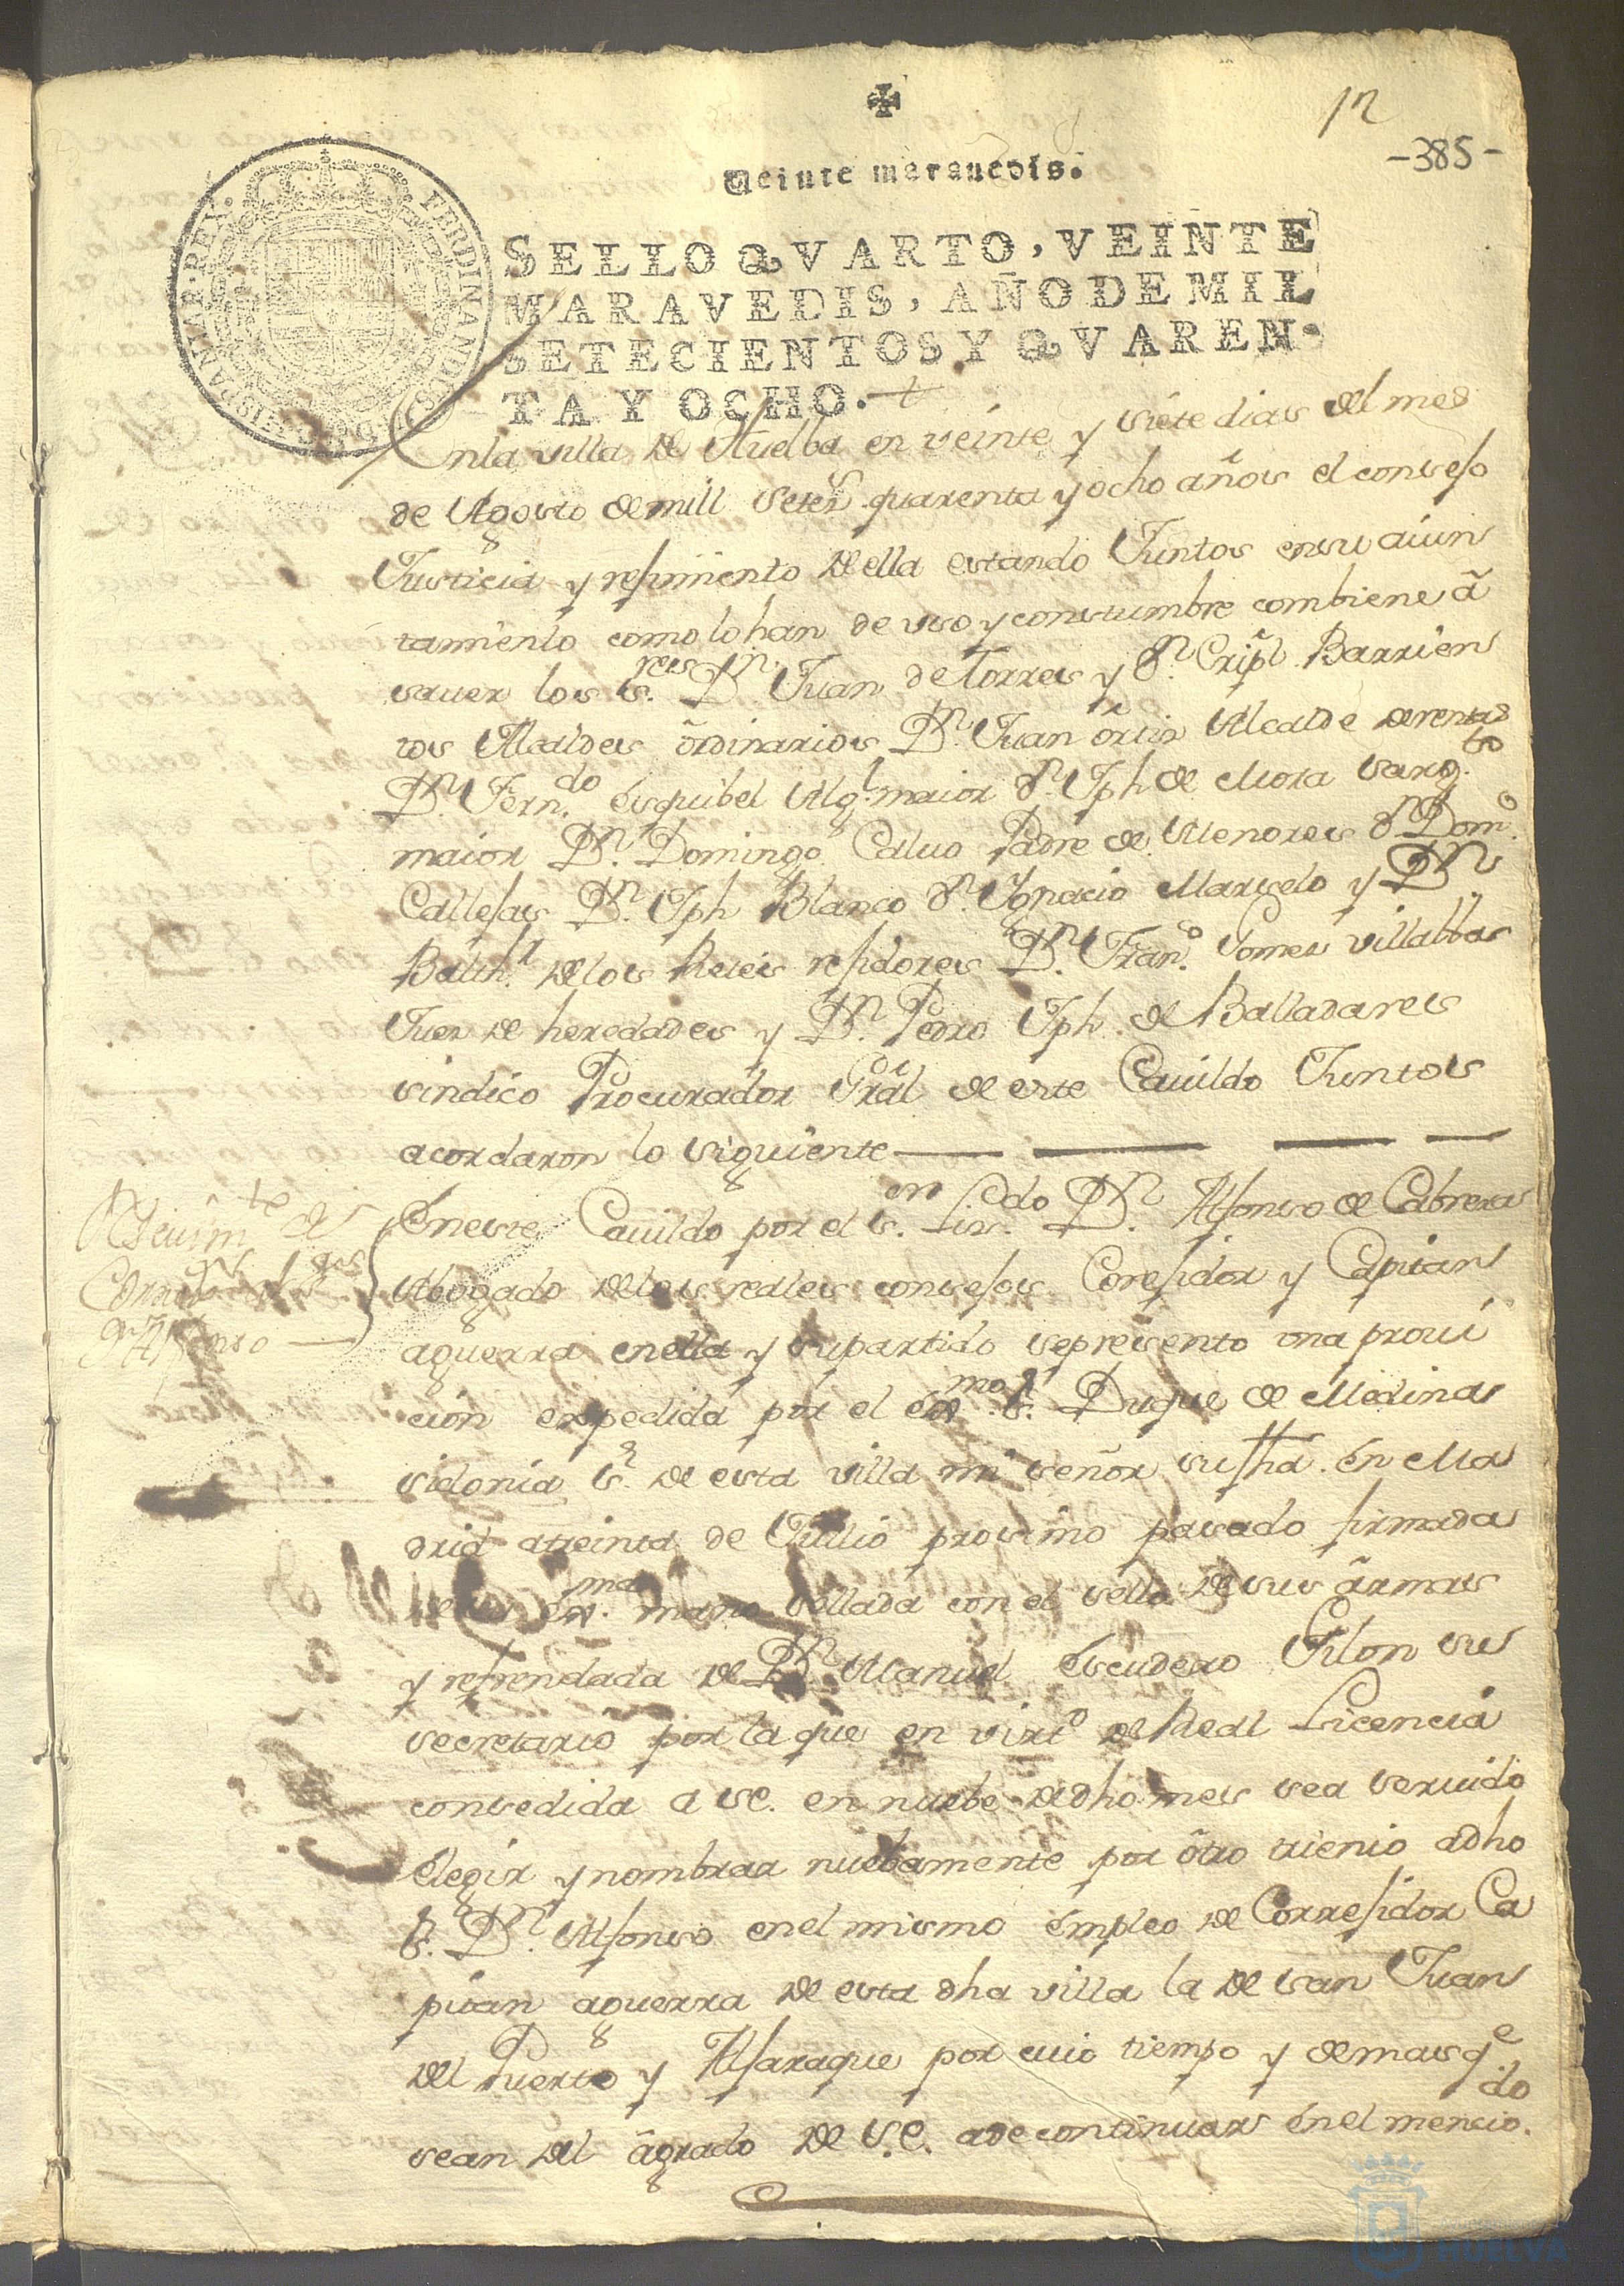 12
-385-
Veinte marauedis.
SELLO QVARTO, VEINTE
MARAVEDIS, AÑO DE MIL
SETECIENTOS Y QVAREN-
TA Y OCHO.
FERDINANDUS VI D G HISPANIAR REX
Enla villa de Huelba en veinte y siete dias del mes
de Agosto de mill setes. quarenta y ocho años el consejo
Justicia y rejimiento de ella estando Juntos ensu aiun
tamiento como lo han de uso y constumbre combiene â
sauer los Sres. Dn. Juan de Torres y Dn. Cripl. Barrien
tos Alcaldes ôrdinarios Dn. Juan ortiz Alcalde de rentas
Dn. Fern.do Esquibel Alg.l maior dn. Jph de Mora Sarg.to
maior Dn. Domingo Caluo Padre de Menores dn Dom.o
Callejas Dn. Jph Blanco dn. Ygnacio Marselo y Dn.
Balth.l de los Reies rejidores Dn. Fran.o Gomez villalbas
Juez de heredades y Dn. Pedro Jph. de Balladares
sindico Procurador Gral de este Cauildo Juntos
acordaron lo siguiente
Reciuim.to de
Corre
dn Alfonso
Eneste Cauildo por el Sr. Liz.do Dn. Alfonso de Cabrera
Abogado de los reales consejos Corejidor y Capitan
aguerra en ella y supartido sepresento vna proui
cion expedida por el Exmo. Sr. Duque de Medina
sidonia Sr. de esta villa mi señor su fha. en Ma
drid atreinta de Jullio prosimo pasado firmada
de su Exma. mano sellada con el sello de sus ârmas
y refrendada de Dn Manuel Escudero Jilon su
secretario por la que en virt.d de Real Licencia
consedida a SE. en nuebe de dho mes sea seruido
elegir y nombrar nuebamente por ôtro trienio adho
Sr. Dn. Alfonso en el mismo empleo de Correjidor Ca
pitan aguerra de esta dha villa la de san Juan
del Puerto y Alfaraque por cuio tiempo y demas q.e
sean del âgrado de S.E. ade continuar en el mencio.do
HUELVA